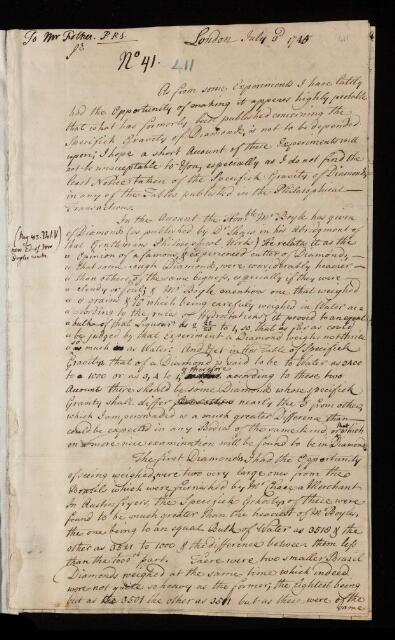 To Mr Folkes. P.R.S.
London July 1745
No 41. 411
As from some Experiments I have lately
had the Opportunity of making it appears highly probable
that what has formerly been published concerning the
Specifick Gravity of Diamonds, is not to be depended
upon; I hope a short Account of these Experiments will
not be unacceptable to You, especially as I do not find the
least Notice taken of the Specifick Gravity of Diamonds
in any of the Tables published in the Philosophical
Transactions.
In the Account the Honble Mr Boyle has given
of Diamonds (as published by Dr Shaw in his Abridgment of
that Gentleman's Philosophical Works) He relates it as the
" Opinion of a famous, & experienced cutter of Diamonds,
" that some rough Diamonds, were considerably heavier
" than others of the same bigness, especially if they were
" cloudy or foul; & Mr Boyle mentions one that weighed
" 8 grains which being carefully weighed in Water ac-
" cording to the rules of Hydrostaticks, it proved to an equal
" bulk of that Liquor as 2 to 1, so, that as far as could
" be judged by that Experiment a Diamond weighs not thrice
" so much as Water; And Yet in his Table of Specifick
Gravity that of a Diamond is said to be to Water as 3400
to 1000 or as 3,4 to 1, & therefore according to these two
Account there should be some Diamond whose specifick
Gravity shall differ nearly the from others
which I am perswaded is a much greater Difference than
could be expected in any Bodies of the same kind & that which
on a more nice examination will be found to be in Diamonds
The first Diamonds I had the Opportunity
of seeing weighed, were two very large ones from the
Brazils which were furnished by Mr Chace, a Merchant
in Austinfryers, the Specifick Gravity of these were
found to be much greater than the heaviest of Mr Boyles,
the one being to an equal Bulk of Water as 3518 & the
other as 3521 to 1000 & the difference between them less
than the 1000th part. There were two smaller Brazil
Diamonds weighed at the same time which indeed
were not quite so heavy as the former, the lightest being
but as 3501 the other as 3511 but as these were of the
same